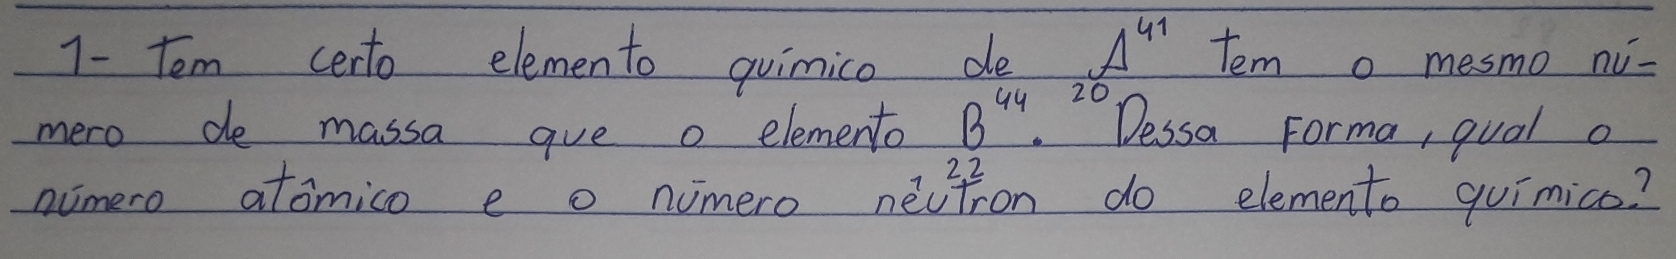 1- Tem certo elemento químico de ₂₀A⁴¹ tem o mesmo nú-
mero de massa que o elemento ₂₂B⁴⁴. Dessa Forma, qual o
número atômico e o número nêutron do elemento químico?